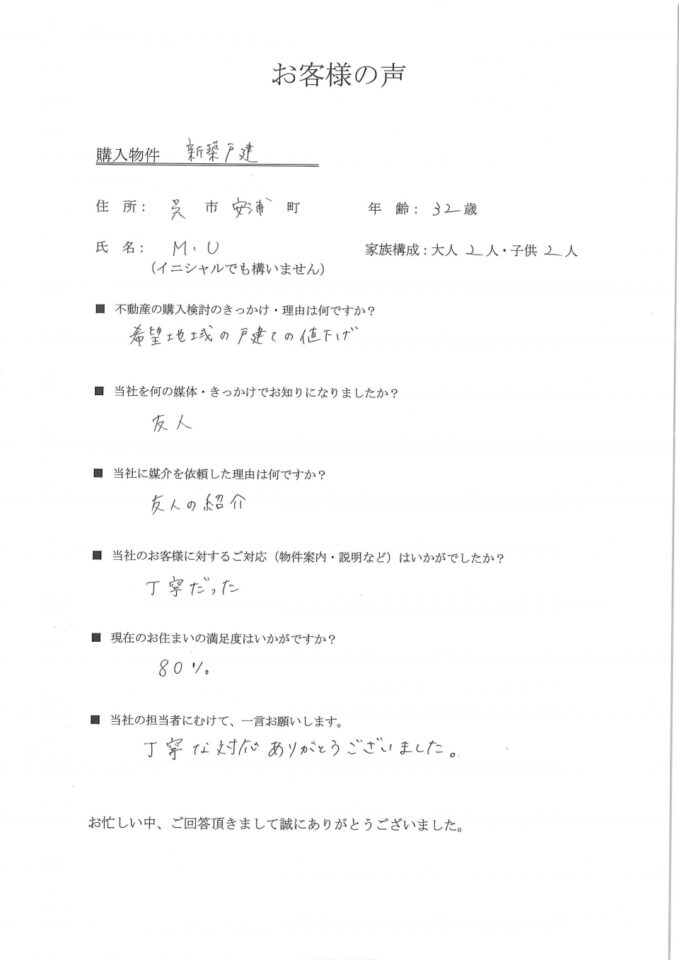 お客様の声
購入物件 新築戸建
住 所： 呉 市 安浦 町 年 齢： 32 歳
氏 名： M.U 家族構成：大人 2 人・子供 2 人
（イニシャルでも構いません）
■ 不動産の購入検討のきっかけ・理由は何ですか？
希望地域の戸建ての値下げ
■ 当社を何の媒体・きっかけでお知りになりましたか？
友人
■ 当社に媒介を依頼した理由は何ですか？
友人の紹介
■ 当社のお客様に対するご対応（物件案内・説明など）はいかがでしたか？
丁寧だった
■ 現在のお住まいの満足度はいかがですか？
80%
■ 当社の担当者にむけて、一言お願いします。
丁寧な対応ありがとうございました。
お忙しい中、ご回答頂きまして誠にありがとうございました。